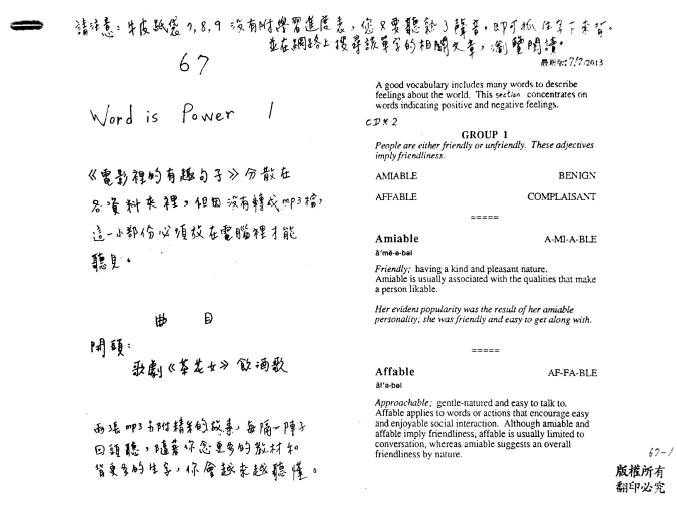 請注意：牛皮紙袋7,8,9 沒有附學習進度表，您只要聽熟了聲音，即可抓住單字來背。
並在網路上搜尋該單字的相關文章，瀏覽閱讀。
最新版:7/7/2013
67
Word is Power 1
《電影裡的有趣句子》分散在
各資料夾裡，但因沒有轉成mp3檔，
這一小部份必須放在電腦裡才能
聽見。
曲 目
開頭：
歌劇《茶花女》飲酒歌
兩張mp3另附精采的故事，每隔一陣子
回頭聽，隨著你念更多的教材和
背更多的生字，你會越來越聽懂。
A good vocabulary includes many words to describe
feelings about the world. This section concentrates on
words indicating positive and negative feelings.
CD#2
GROUP 1
People are either friendly or unfriendly. These adjectives
imply friendliness.
AMIABLE BENIGN
AFFABLE COMPLAISANT
=====
Amiable A-MI-A-BLE
ā'mē-ə-bəl
Friendly; having a kind and pleasant nature.
Amiable is usually associated with the qualities that make
a person likable.
Her evident popularity was the result of her amiable
personality, she was friendly and easy to get along with.
=====
Affable AF-FA-BLE
ăf'ə-bəl
Approachable; gentle-natured and easy to talk to.
Affable applies to words or actions that encourage easy
and enjoyable social interaction. Although amiable and
affable imply friendliness, affable is usually limited to
conversation, whereas amiable suggests an overall
friendliness by nature.
67-1
版權所有
翻印必究